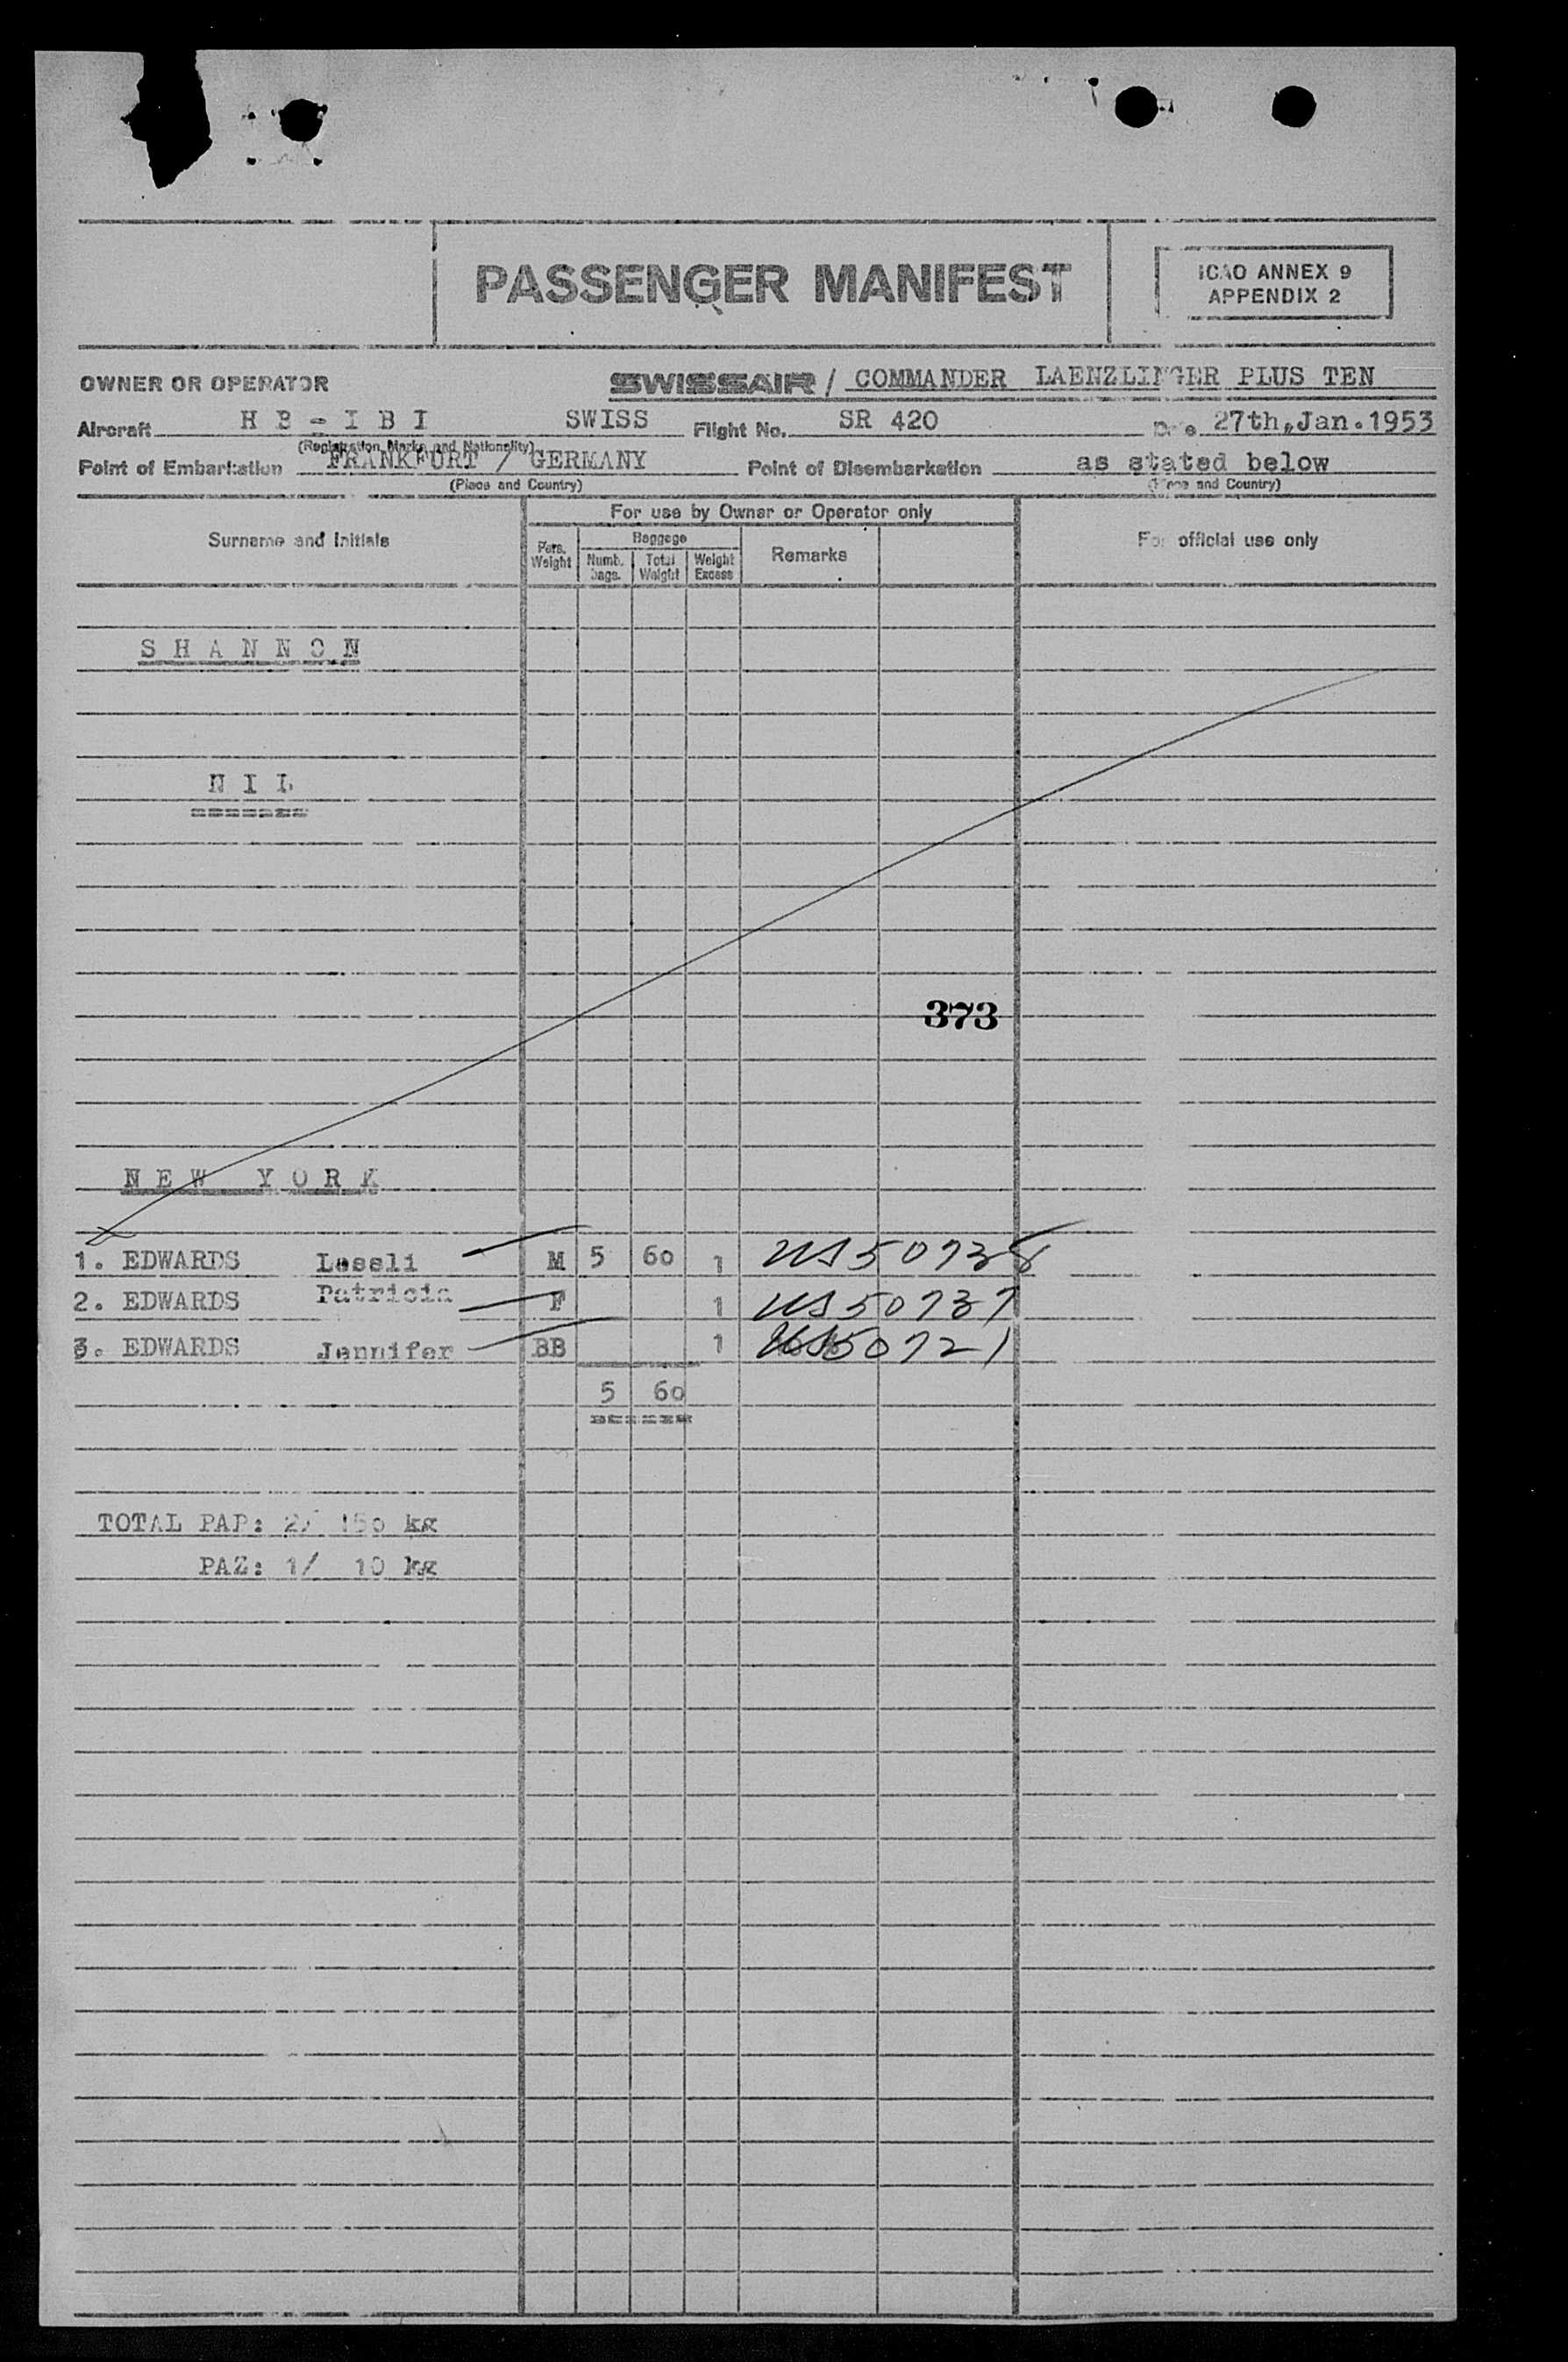 PASSENGER MANIFEST
ICAO ANNEX 9
APPENDIX 2
OWNER OR OPERATOR SWISSAIR / COMMANDER LAENZLINGER PLUS TEN
Aircraft H B - I B I SWISS Flight No. SR 420 Date 27th, Jan. 1953
(Registration Marks and Nationality)
Point of Embarkation FRANKFURT / GERMANY Point of Disembarkation as stated below
(Place and Country) (Place and Country)
For use by Owner or Operator only
Surname and Initials Pers. Weight Baggage Numb. bags. Total Weight Weight Excess Remarks For official use only
S H A N N O N
N I L
=======
373
N E W Y O R K
1. EDWARDS Lessli M 5 60 1 US 50738
2. EDWARDS Patricia F 1 US 50737
3. EDWARDS Jennifer BB 1 US 50721
5 60
=======
TOTAL PAP: 2/ 150 kg
PAZ: 1/ 10 kg